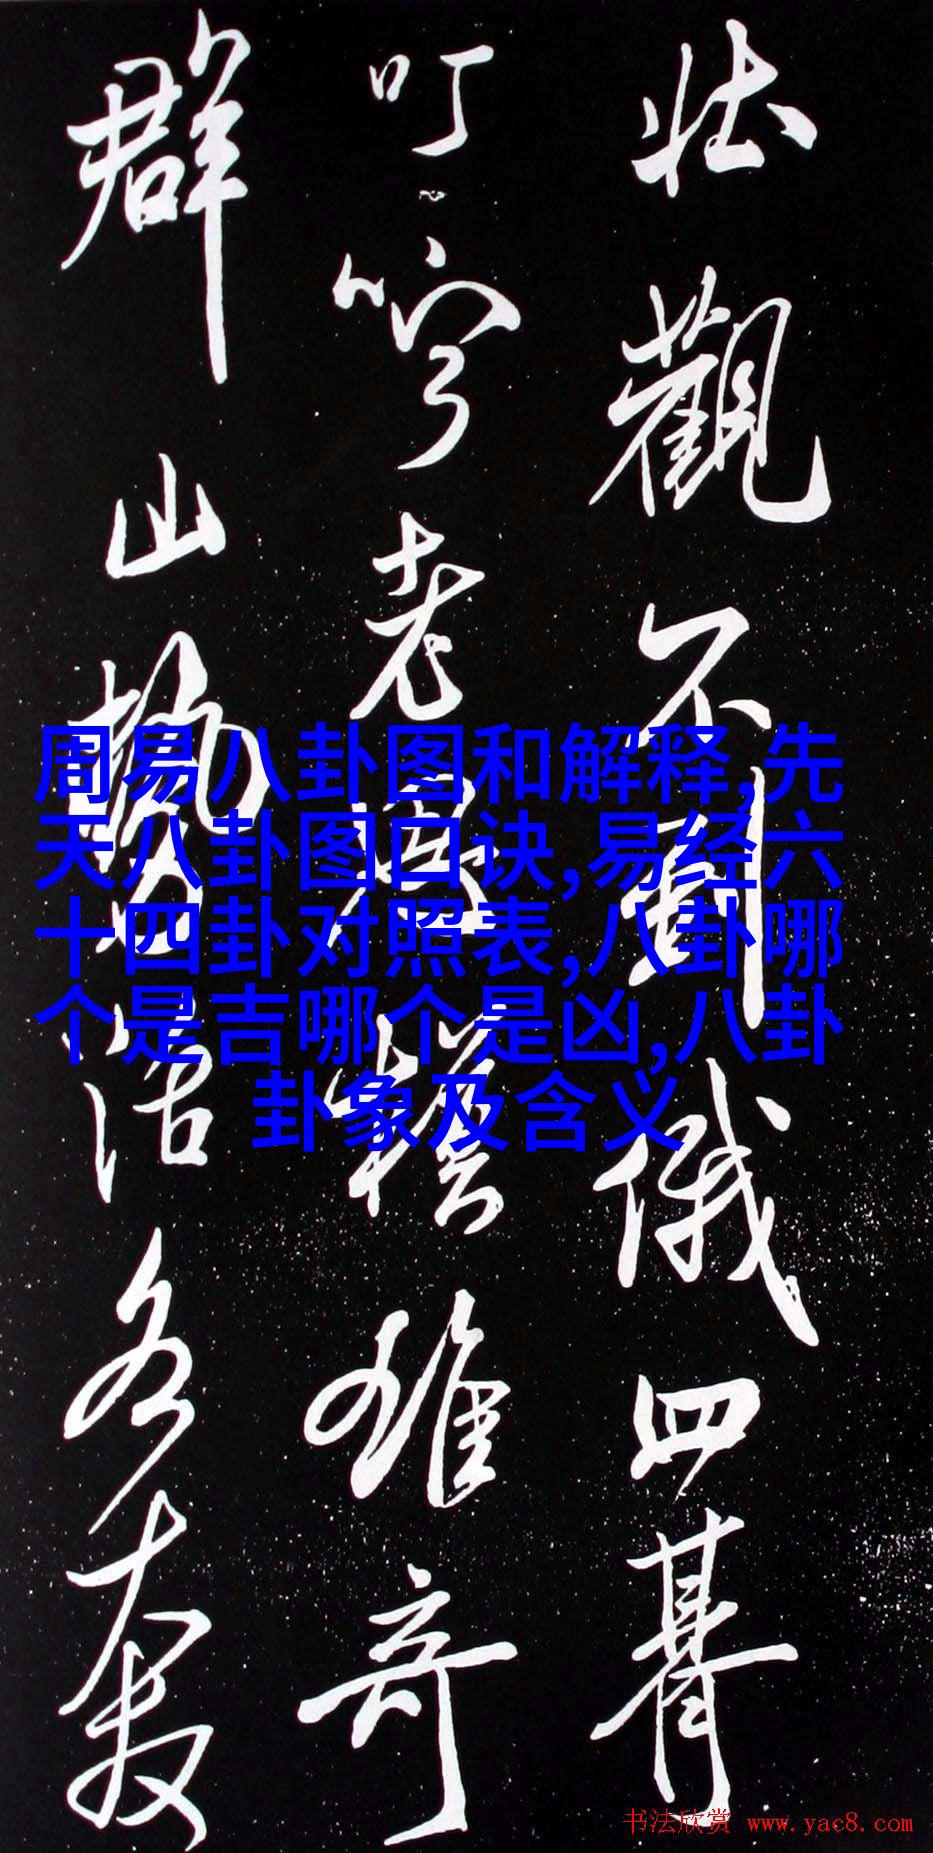 壮觀不俄四暮
叮嚀老雄奇
群山勢活
周易八卦图和解释,先
天八卦图口诀,易经六
十四卦对照表,八卦哪
个是吉哪个是凶,八卦
卦象及含义
书法欣赏 www.yac8.com